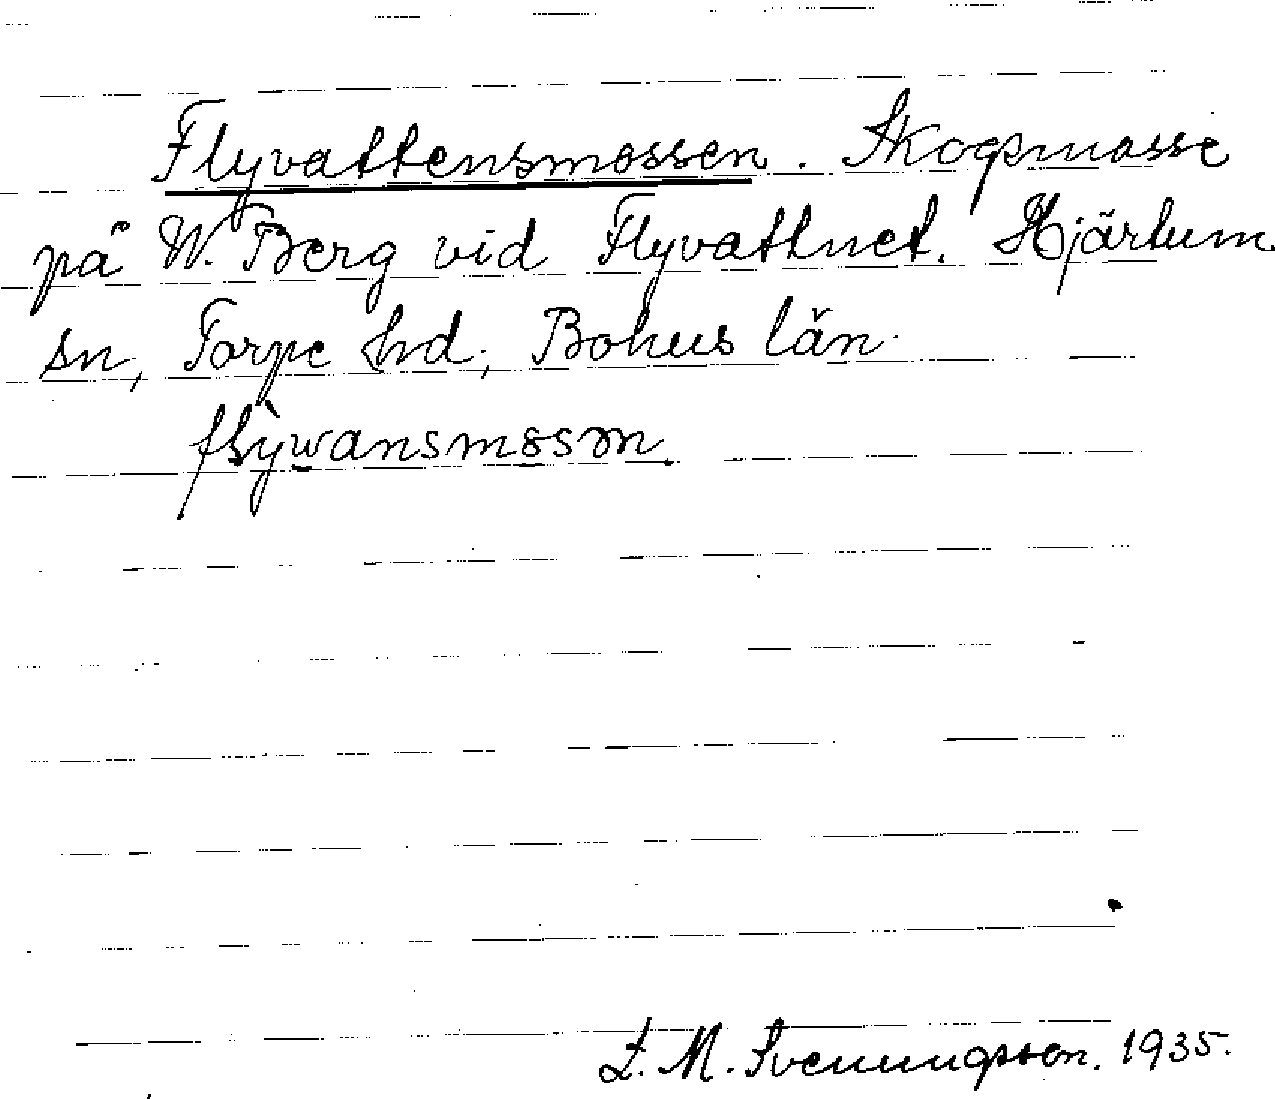 Flyvattensmossen. Skogsmosse
på W. Berg vid Flyvattnet. Hjärtum
sn, Torpe hd, Bohus län.
flỳwansmosɷn.
L. M. Svenungsson. 1935.